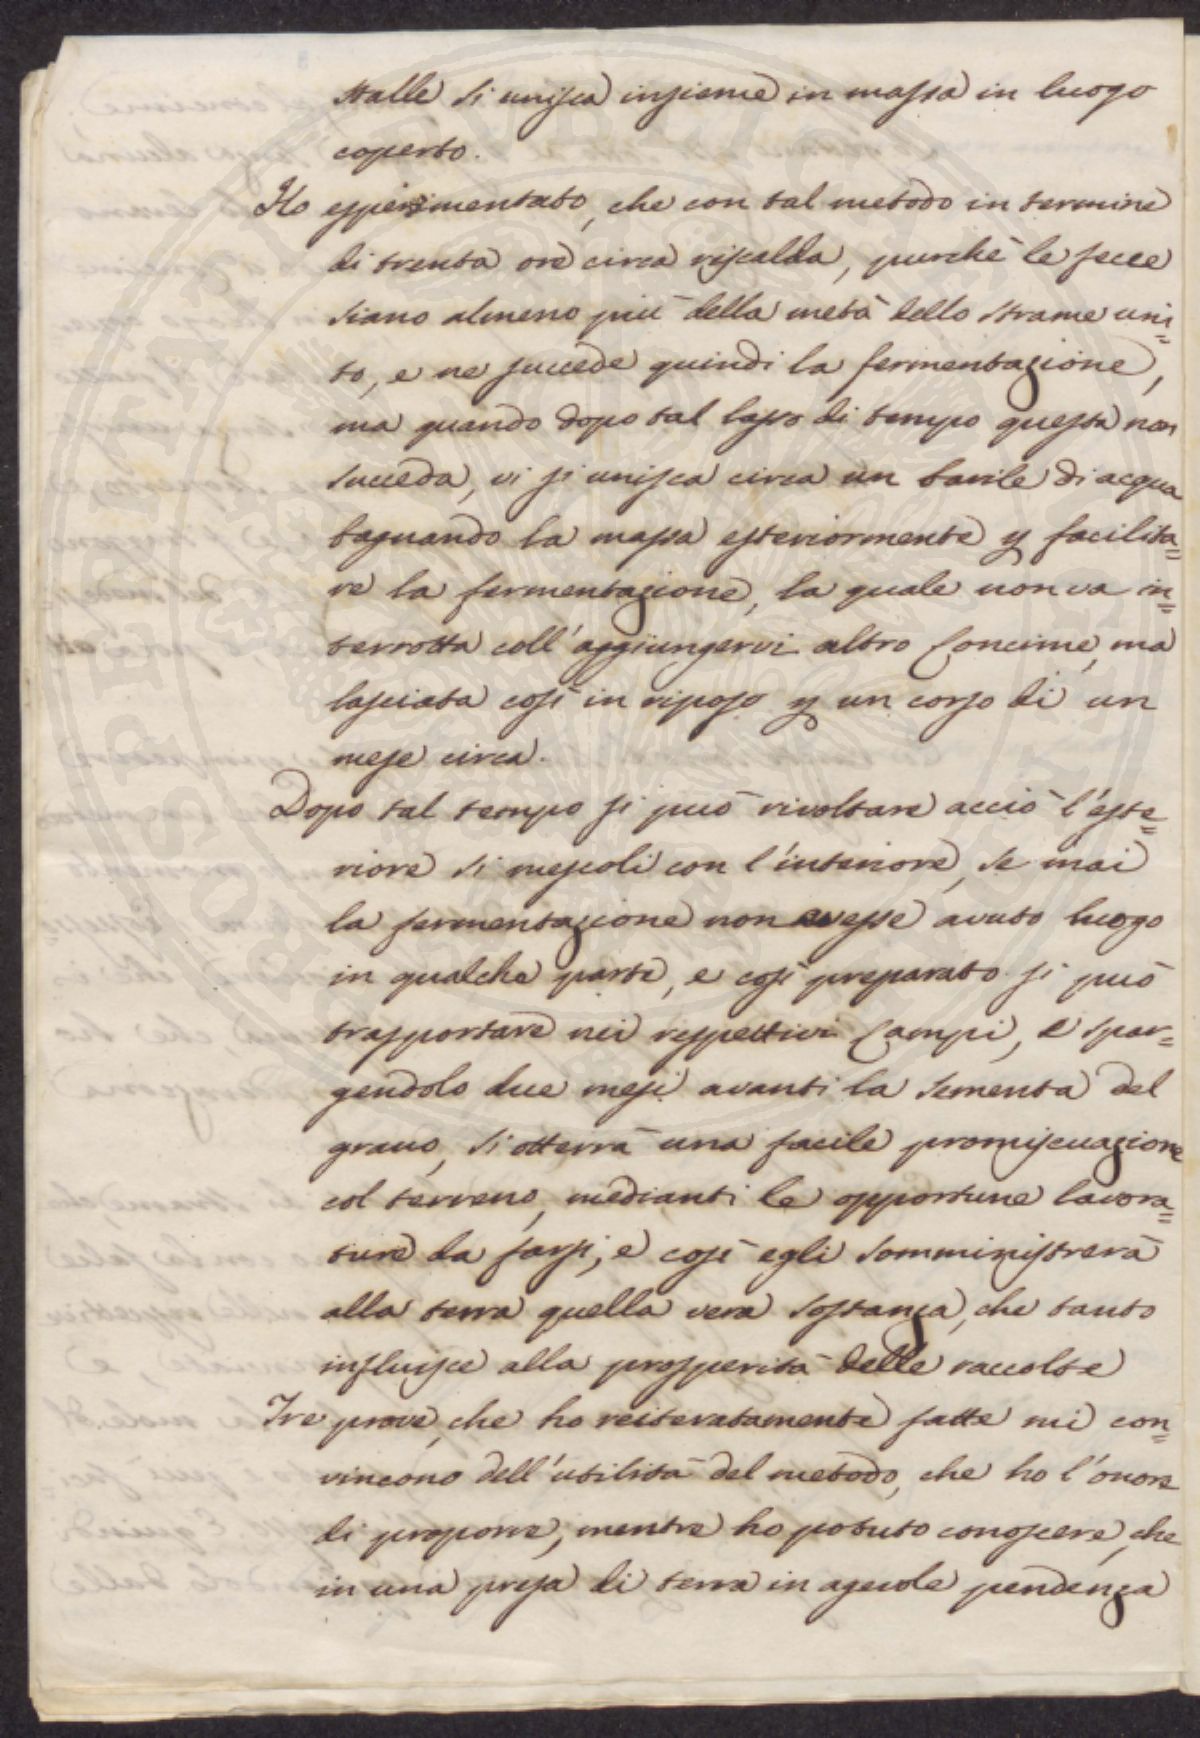 stalle si unisca insieme in massa in luogo
coperto.
Ho esperimentato, che con tal metodo in termine
di trenta ore circa riscalda, purchè le fecce
siano almeno più della metà dello strame uni=
to, e ne succede quindi la fermentazione,
ma quando dopo tal lasso di tempo questa non
succeda, vi si unisca circa un barile di acqua
bagnando la massa esteriormente p facilita=
re la fermentazione, la quale non va in=
terrotta coll'aggiungervi altro Concime, ma
lasciata così in riposo p un corso di un
mese circa.
Dopo tal tempo si può rivoltare acciò l'este=
riore si mescoli con l'interiore, se mai
la fermentazione non avesse avuto luogo
in qualche parte, e così preparato si può
trasportare nei rispettivi Campi, e spar=
gendolo due mesi avanti la sementa del
grano, si otterrà una facile promiscuazione
col terreno, medianti le opportune lavora=
ture da farsi, e così egli somministrerà
alla terra quella vera sostanza, che tanto
influisce alla prosperità delle raccolte
Tre prove, che ho reiteratamente fatte mi con=
vincono dell'utilità del metodo, che ho l'onore
di proporre, mentre ho potuto conoscere, che
in una presa di terra in agevole pendenza